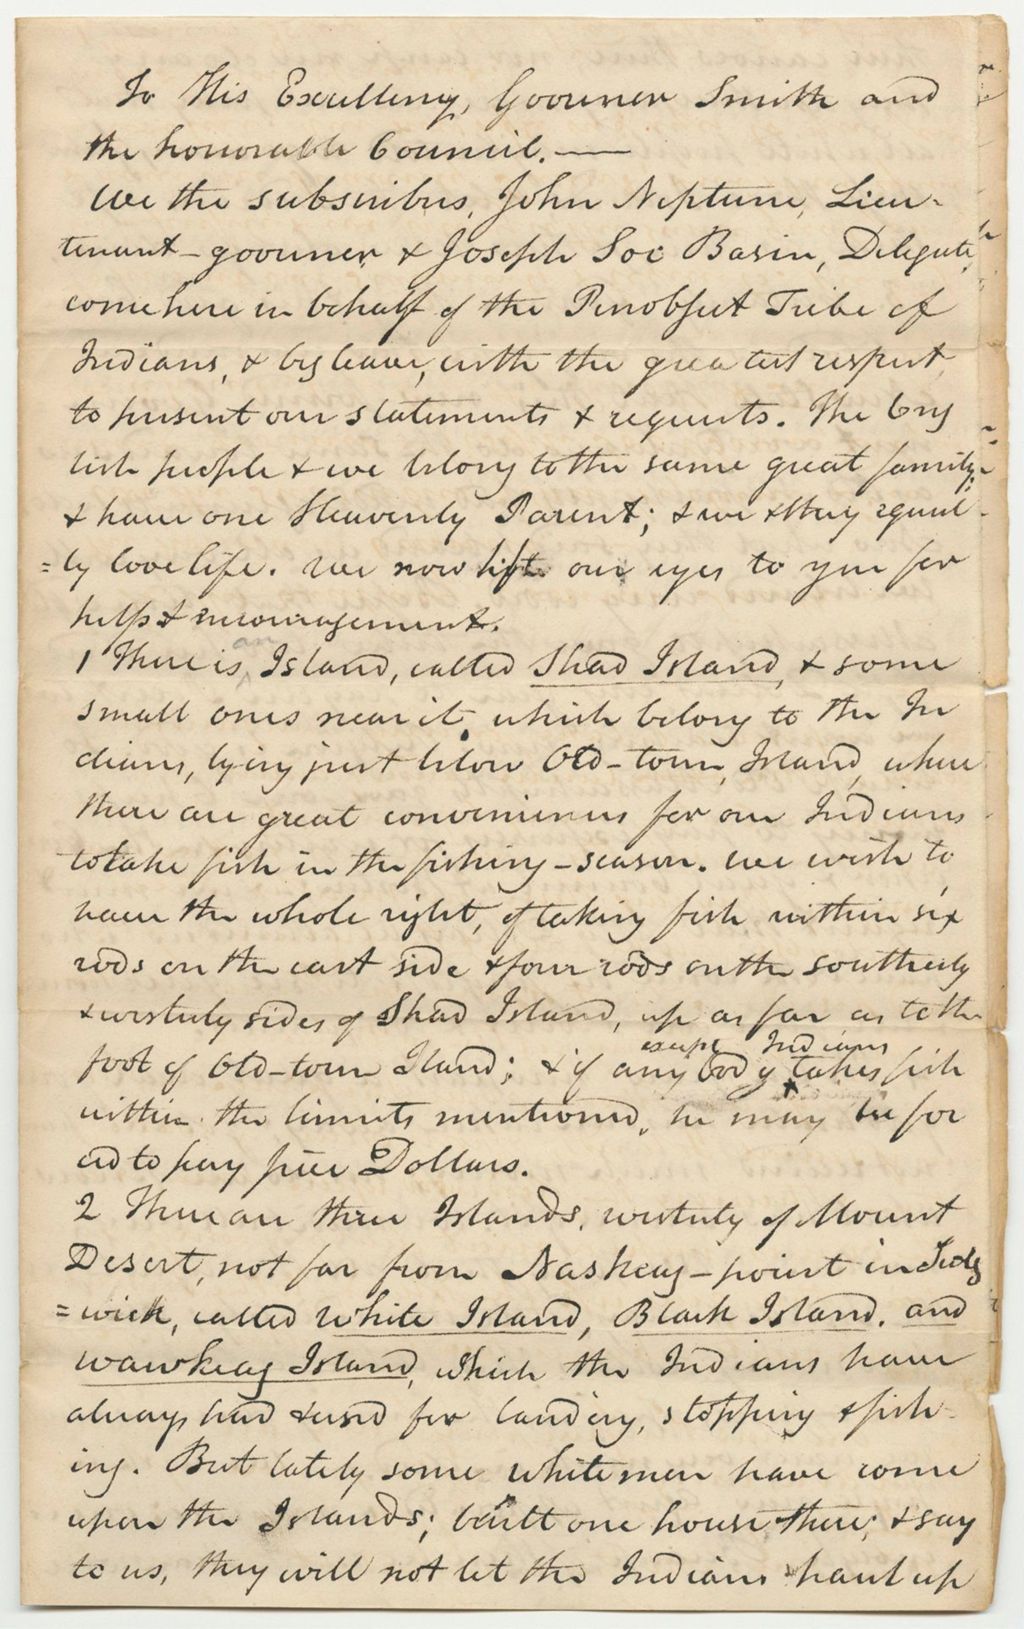 To His Excellency, Governer Smith and
the honorable Council. —
We the subscribers, John Neptune, Lieu-
tenant-governer, & Joseph Soc Basin, Delegate,
come here in behalf of the Penobscot Tribe of
Indians, & beg leave, with the greatest respect,
to present our statements & requests. The Eng
lish people & we belong to the same great family;
& have one Heavenly Parent; & we & they equal-
=ly love life. We now lift our eyes to you for
help & encouragement.
1 There is an Island, called Shad Island, & some
small ones near it, which belong to the In
dians, lying just below Old-town Island, where
there are great conveniences for our Indians
to take fish in the fishing-season. We wish to
have the whole right, of taking fish within six
rods on the east side & four rods on the southerly
& westerly sides of Shad Island, up as far as to the
foot of Old-town Iland; & if any body except Indians takes fish
within the limits mentioned, he may be for
ced to pay five Dollars.
2 There are three Islands, westerly of Mount
Desert, not far from Naskeag-point in Sedg
=wick, called White Island, Black Island, and
Wawkeag Island, which the Indians have
always had & used for landing, stopping & fish-
ing. But lately some white men have come
upon the Islands; built one house there; & say
to us, they will not let the Indians haul up